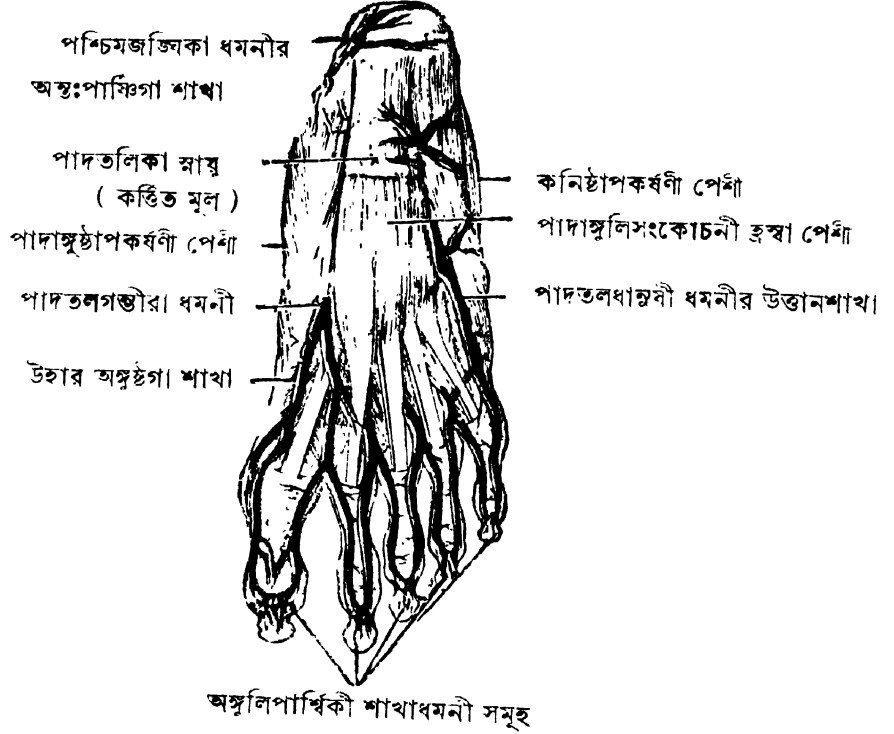 পশ্চিমজঙ্ঘিকা ধমনীর
অন্তঃপার্ষ্ণিগা শাখা
পাদতলিকা স্নায়ু
( কর্ত্তিত মূল )
পাদাঙ্গুষ্ঠাপকর্ষণী পেশী
পাদতলগম্ভীরা ধমনী
উহার অঙ্গুষ্ঠগা শাখা
কনিষ্ঠাপকর্ষণী পেশী
পাদাঙ্গুলিসংকোচনী হ্রস্বা পেশী
পাদতলধানুষী ধমনীর উত্তানশাখা
অঙ্গুলিপার্শ্বিকী শাখাধমনী সমূহ